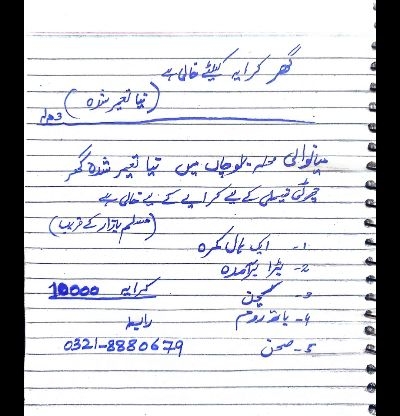 گھر کرایہ کیلئے خالی ہے
(نیا تعمیر شدہ) 3 مرلہ
میانوالی محلہ بلوچاں میں نیا تعمیر شدہ گھر
چھوٹی فیملی کے لیے کرایے کے لیے خالی ہے
(مسلم بازار کے قریب)
1- ایک ہال کمرہ
2- بڑا برآمدہ
3- کچن کرایہ 10000
4- باتھ روم رابطہ
5- صحن 0321-8880679